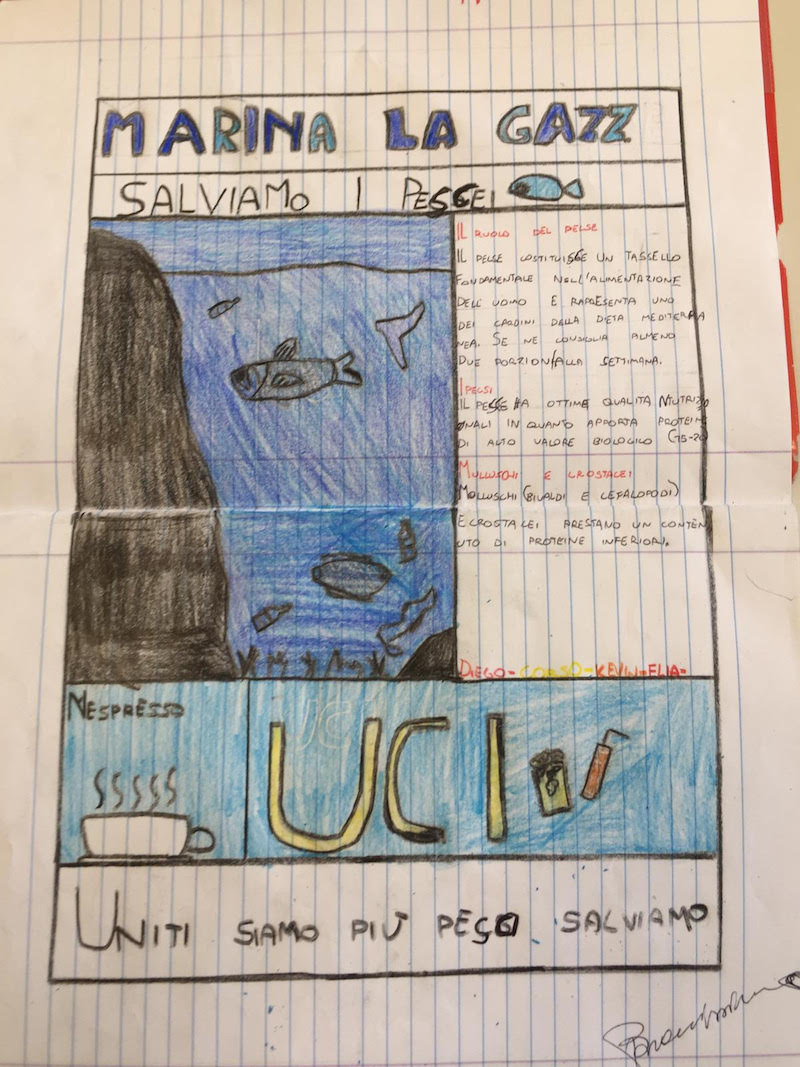 MARINA LA GAZZ
SALVIAMO I PESCEI
IL RUOLO DEL PELSE
IL PELSE COSTITUISCE UN TASSELLO
FONDAMENTALE NELL'ALIMENTAZIONE
DELL'UOMO E RAPRESENTA UNO
DEI CARDINI DELLA DIETA MEDITERRA
NEA. SE NE CONSIGLIA ALMENO
DUE PORZIONI ALLA SETTIMANA.
I PELSI
IL PESSE HA OTTIME QUALITA NUTRIZI
ONALI IN QUANTO APPORTA PROTEIN
DI ALTO VALORE BIOLOGICO (15-20
MULLUSCHI E CROSTALEI
MOLLUSCHI (BIVALDI E CEFALOPODI)
E CROSTALEI PRESTANO UN CONTEN
UTO DI PROTEINE INFERIORI.
DIEGO-CORSO-KEVIN-ELIA-
NESPRESSO
UCI
UNITI SIAMO PIÙ PESCI SALVIAMO